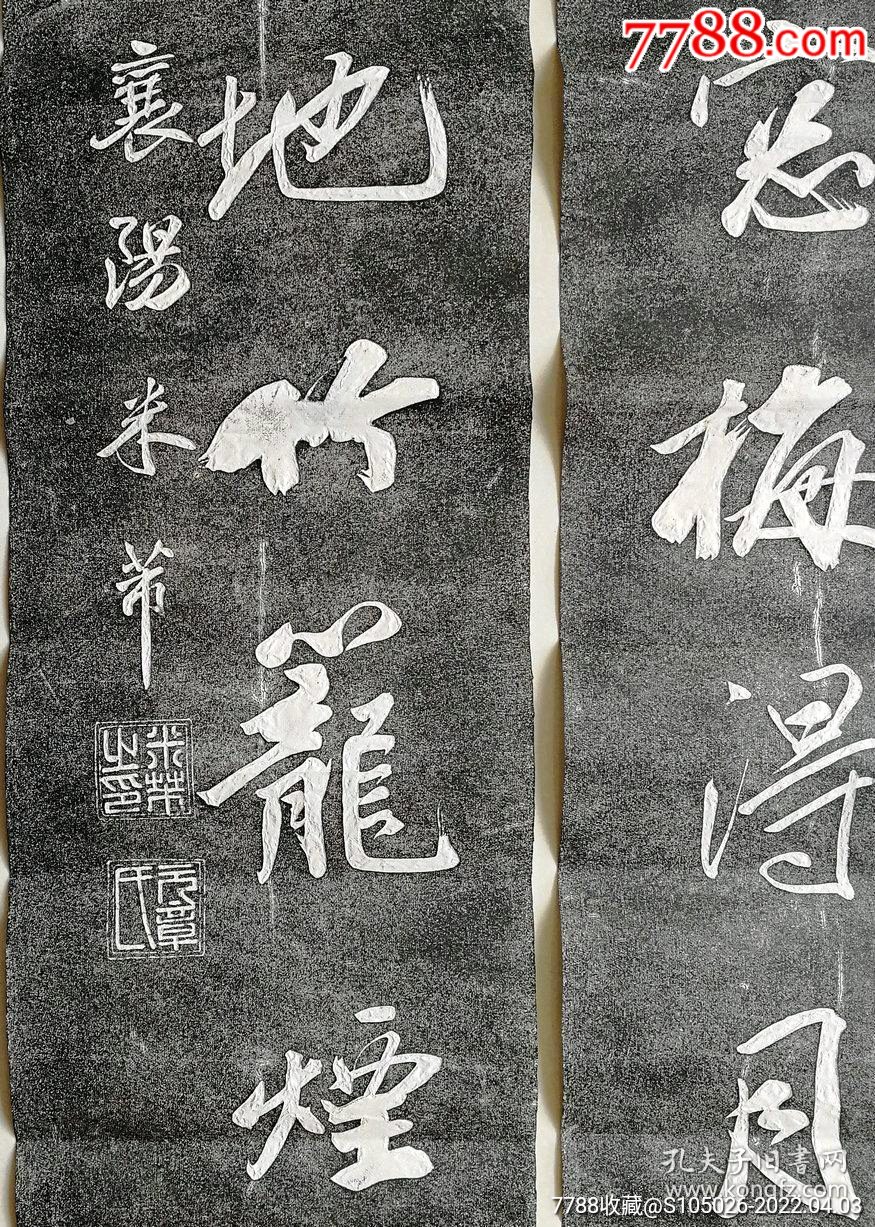 7788.com
窓梅得月
地竹籠煙
襄陽米芾
米芾之印
元章氏
孔夫子旧书网
www.kongfz.com
7788收藏@S105026-2022.04.03